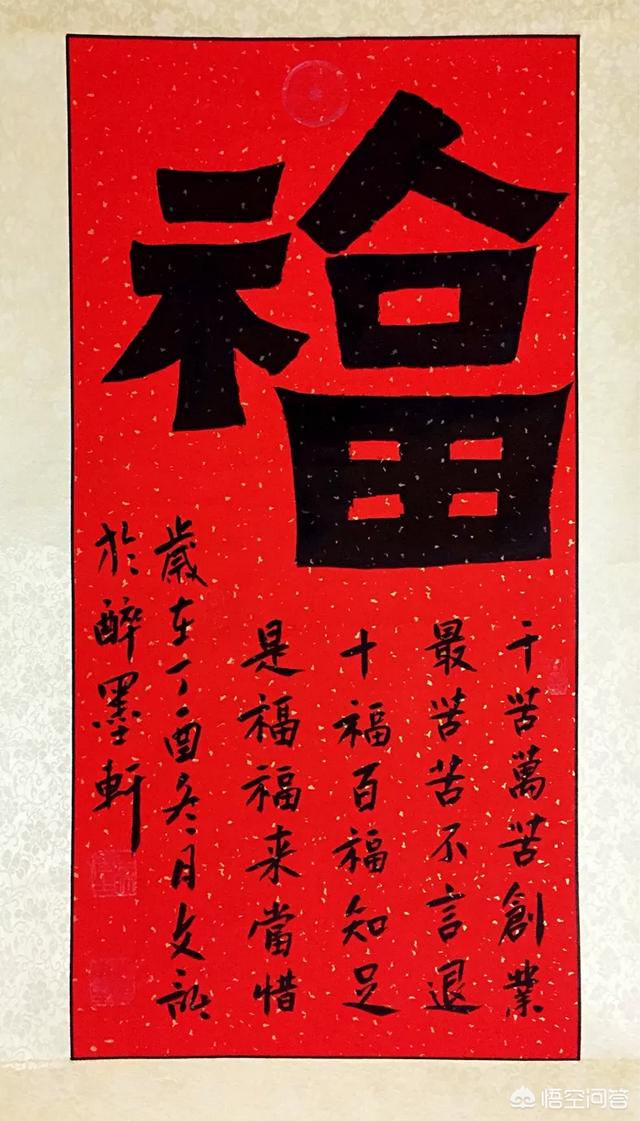 福
千苦萬苦創業
最苦苦不言退
十福百福知足
是福福来當惜
歲在丁酉冬月文
於醉墨軒
悟空问答